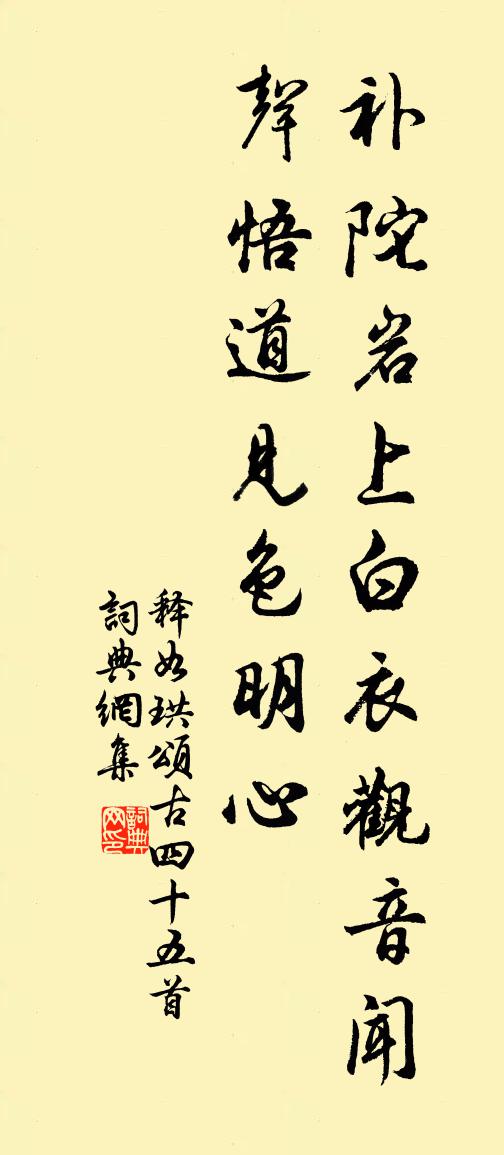 补陀岩上白衣觀音闻
聲悟道见色明心
释如珙頌古四十五首
詞典網集
詞典网印